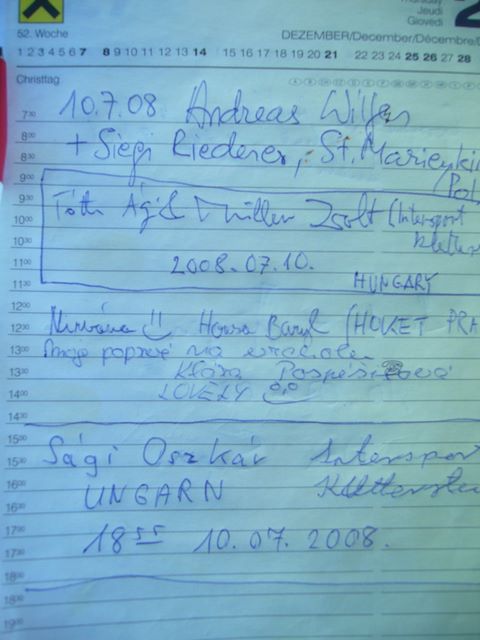 Jeudi
Giovedì
52. Woche
DEZEMBER/December/Décembre/D
1 2 3 4 5 6 7 8 9 10 11 12 13 14 15 16 17 18 19 20 21 22 23 24 25 26 27 28
Christtag
7³⁰ 10.7.08 Andreas
8⁰⁰ + Siegi Riederer, St. Marien
8³⁰
9⁰⁰
9³⁰ Tóth Ági & Müller Zsolt (Intersport
10⁰⁰
10³⁰ Kletter
11⁰⁰ 2008.07.10.
11³⁰ HUNGARY
12⁰⁰
12³⁰ Nirvána Honza (HOVET PRA
13⁰⁰ Moje poprvé na
13³⁰ Klára Pospíšilová
14⁰⁰ LOVELY
14³⁰
15⁰⁰ Sági Oszkár Intersport
15³⁰
16⁰⁰ UNGARN Kletterste
16³⁰
17⁰⁰ 18⁵⁵ 10.07.2008.
17³⁰
18⁰⁰
18³⁰
19⁰⁰